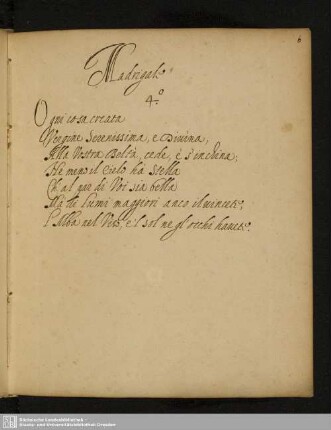 6
Madrigale
4.º
Ogni cosa creata
Vergine Serenissima, e Divina,
Alla Vostra Beltà, cede, è s'inchina;
Ne meno il Cielo ha Stella
Ch'al par di Voi sia bella
Ma tu lumi maggiori anco il vincete,
L'Alba nel Viso, e'l Sol ne gl'occhi havete.